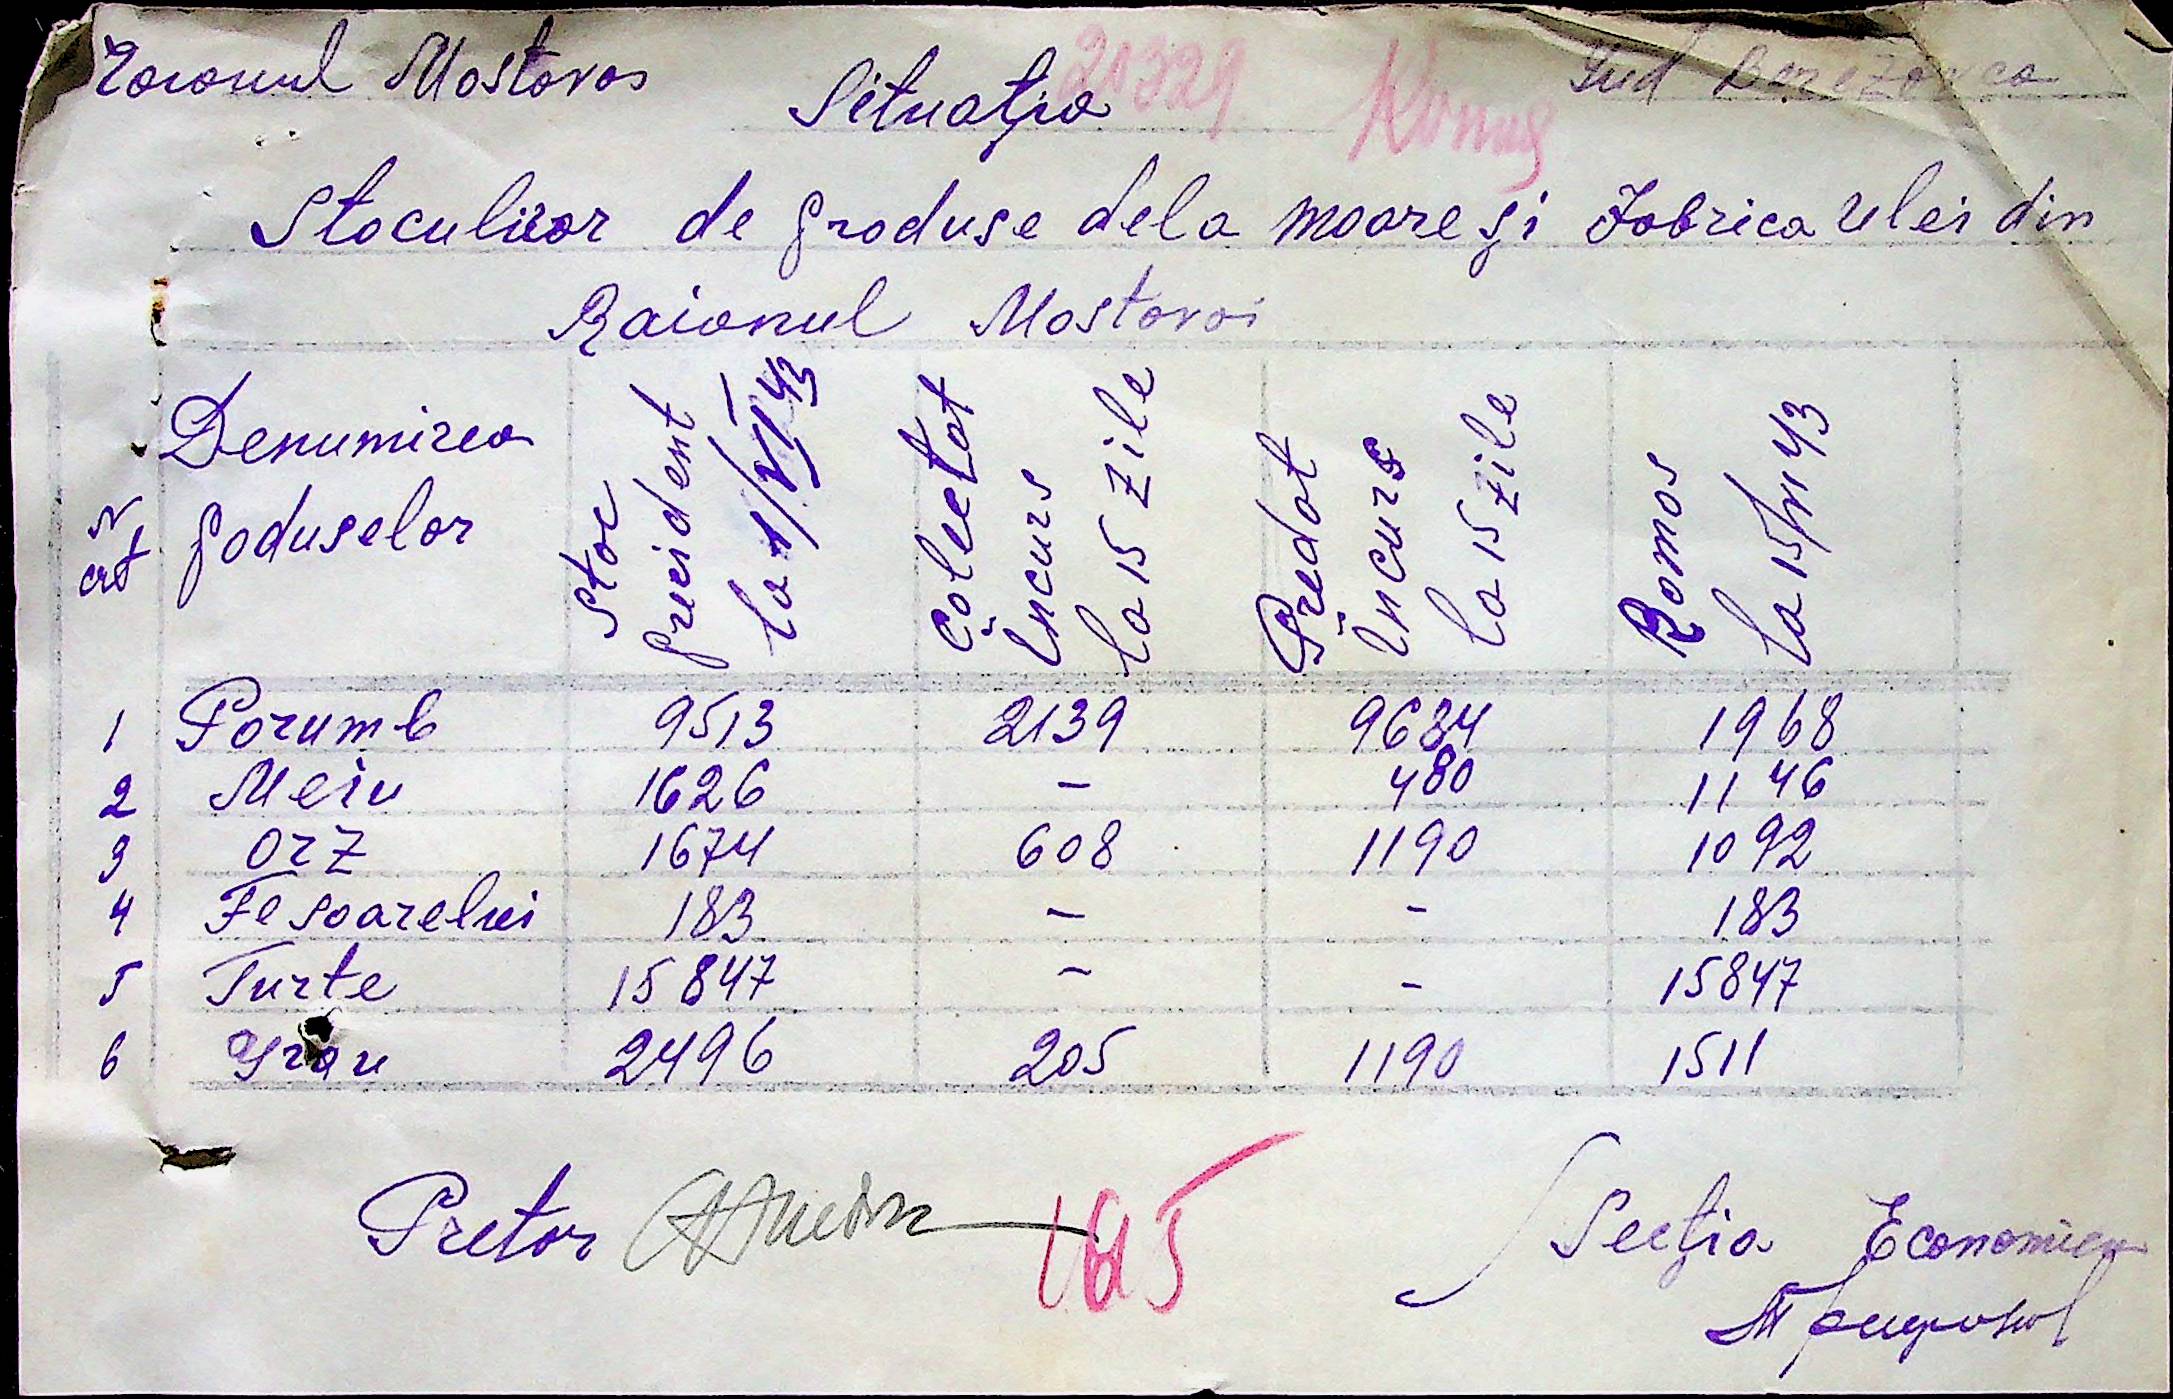 Raionul Mostovoi
Situația
21329
Jud Berezovca
Stocurilor de produse dela moare și Fabrica Ulei din
Raionul Mostovoi
Nr crt
Denumirea produselor
Stoc precident la 1/VI 43
Colectat în curs la 15 zile
Predat în curs la 15 zile
Romas la 15/VI 43
1 Porumb 9513 2139 9684 1968
2 Meiu 1626 – 480 1146
3 Orz 1674 608 1190 1092
4 Fl soarelui 183 – – 183
5 Turte 15847 – – 15847
6 Grau 2496 205 1190 1511
Pretor
165
Secția Economica